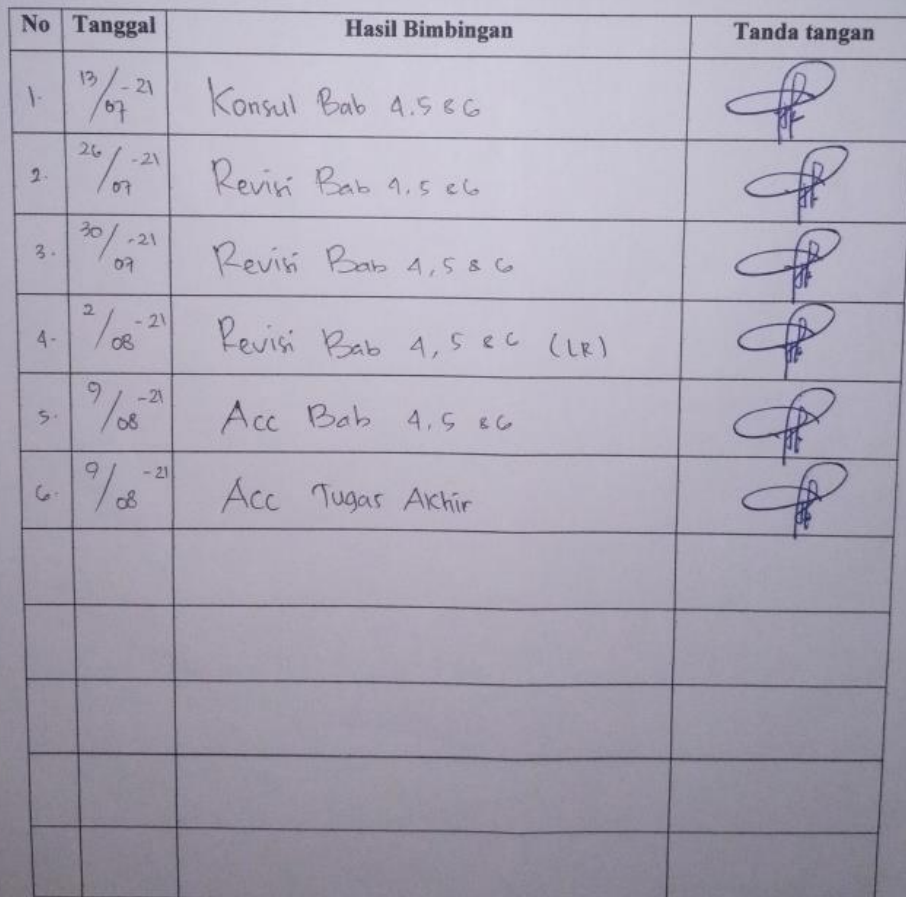 No Tanggal Hasil Bimbingan Tanda tangan
1. 13/07-21 Konsul Bab 4.5 & 6
2. 26/07-21 Revisi Bab 4.5 & 6
3. 30/07-21 Revisi Bab 4,5 & 6
4. 2/08-21 Revisi Bab 4,5 & 6 (LR)
5. 9/08-21 Acc Bab 4.5 & 6
6. 9/08-21 Acc Tugas Akhir